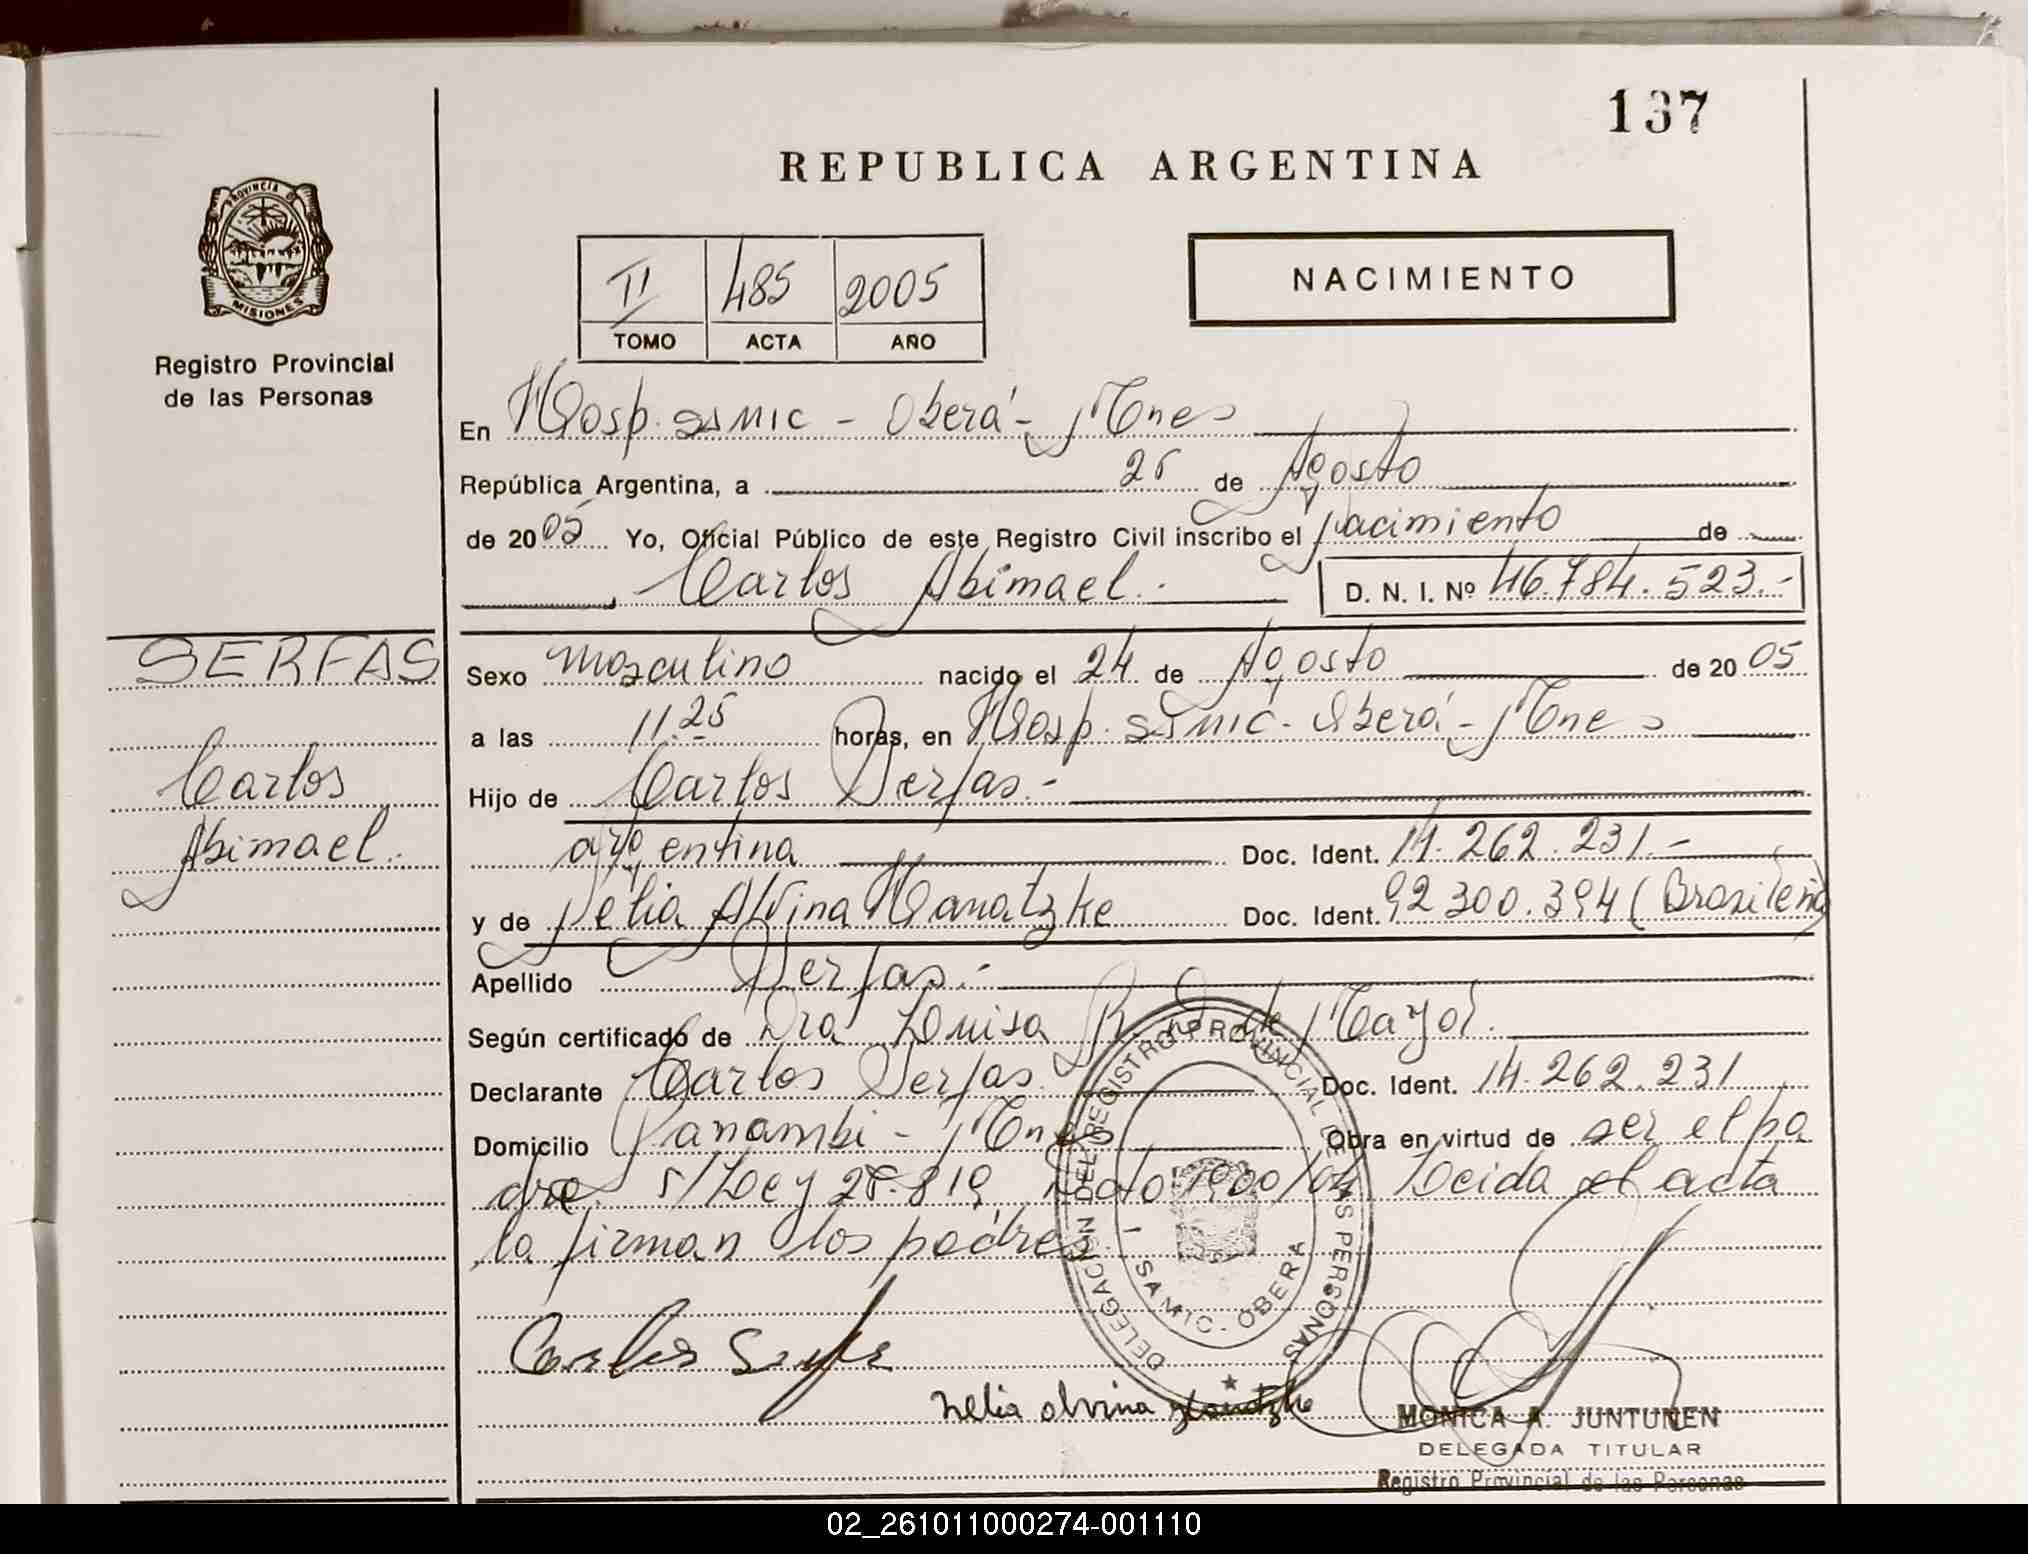 137
REPUBLICA ARGENTINA
PROVINCIA DE
MISIONES
Registro Provincial
de las Personas
II 485 2005
TOMO ACTA AÑO
NACIMIENTO
En Hosp. SAMIC - Oberá - Mnes
República Argentina, a 25 de Agosto
de 2005 Yo, Oficial Público de este Registro Civil inscribo el nacimiento de
Carlos Abimael.-
D. N. I. Nº 46.784.523.-
SERFAS
Carlos
Abimael.
Sexo masculino nacido el 24 de Agosto de 2005
a las 11.25 horas, en Hosp. SAMIC - Oberá - Mnes
Hijo de Carlos Serfas.-
argentina Doc. Ident. 14.262.231.-
y de Nelia Alvina Hanatzke Doc. Ident. 92.300.394 (Brasileña)
Apellido Serfas.-
Según certificado de Dra Luisa R. de Mayol.
Declarante Carlos Serfas. Doc. Ident. 14.262.231
Domicilio Panambi - Mnes Obra en virtud de ser el pa
dre. s/Ley 25.819, 1900/04 Leida el acta
la firman los padres.-
DELEGACION DEL REGISTRO PROVINCIAL DE LAS PERSONAS
SAMIC - OBERA
Carlos Serfas
Nelia Alvina Hanatzke
MONICA A. JUNTUNEN
DELEGADA TITULAR
Registro Provincial de las Personas
02_261011000274-001110